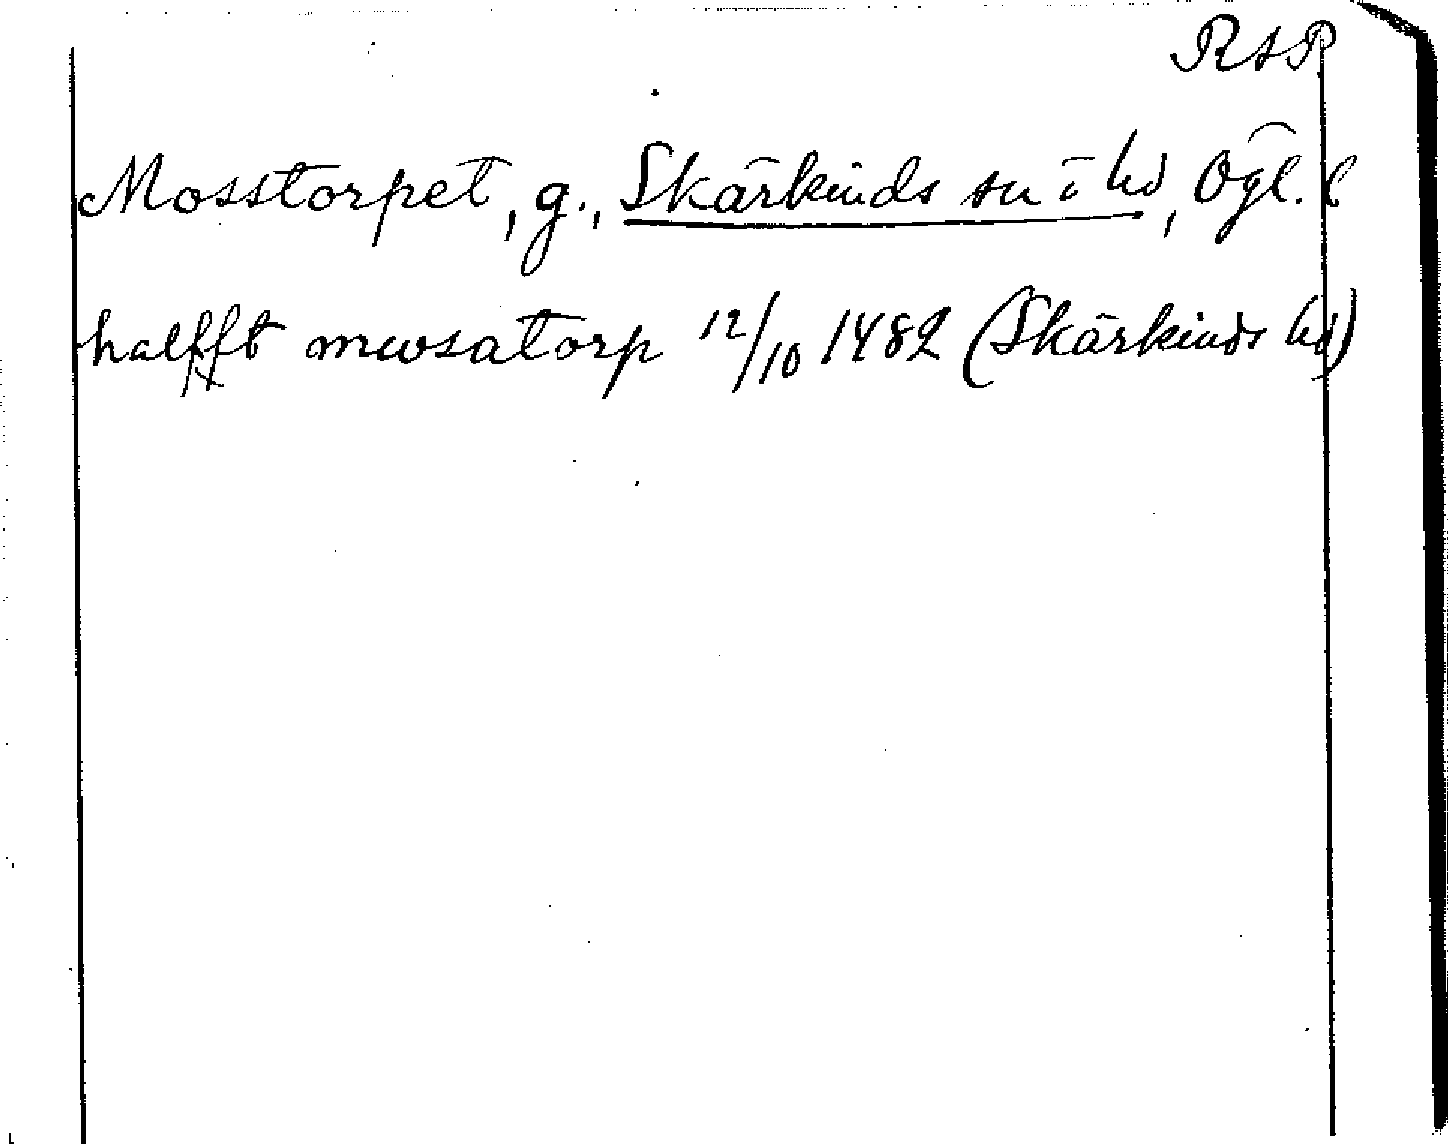 RAP
Mosstorpet, g., Skärkinds sn o hd, Ögl. l
halfft mwsatorp 12/10 1482 (Skärkinds hd)